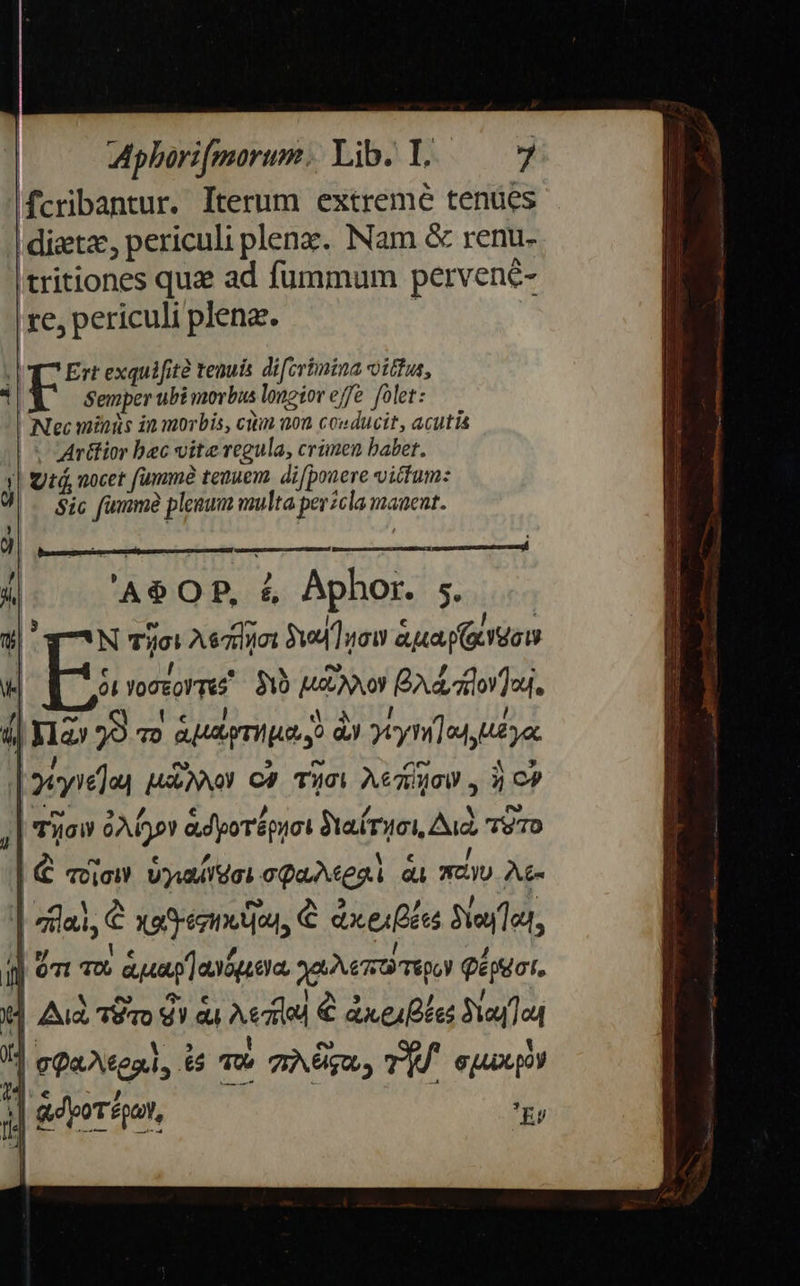 Aphoriſmorum. Lib. I. 7
ſcribantur. Iterum extremè tenues
diætæ, periculi plenæ. Nam & renu-
tritiones quæ ad ſummum pervenê-
re, periculi plenæ.
FErt exquiſitè tenuis diſcrimina victus,
Semper ubi morbus longior eſſe ſolet:
Nec minùs in morbis, cùm non conducit, acutis
Arctior hæc vitæ regula, crimen habet.
Utq́, nocet ſummè tenuem diſponere victum:
Sic ſummè plenum multa pericla manent.
ἈΦΟΡ, έ, Aphor. 5.
ἘΝ τῇσι λεπτῇσι διαίτῃσιν ἁμαρτάνουσιν
οἱ νοσέοντες· διὸ μᾶλλον βλάπτονται.
Πᾶν γὸ τὸ ἁμάρτημα, ὃ ἂν γίγνηται, μέγα
γίγνεται μᾶλλον ἐν τῇσι λεπτῇσιν, ἢ ἐν
τῇσιν ὀλίγον ἁδροτέρῃσι διαίτῃσι, Διὰ τοῦτο
καὶ τοῖσιν ὑγιαίνουσι σφαλεραὶ αἱ πάνυ λε-
πταὶ, καὶ καθεστηκυῖαι, καὶ ἀκριβέες δίαιται,
ὅτι τὰ ἁμαρτανόμενα χαλεπώτερον φέρουσι.
Διὰ τοῦτο οὖν αἱ λεπταὶ καὶ ἀκριβέες δίαιται
σφαλεραὶ, ἐς τὰ πλεῖστα, τῶν σμικρὸν
ἁδροτέρων, Ἐν